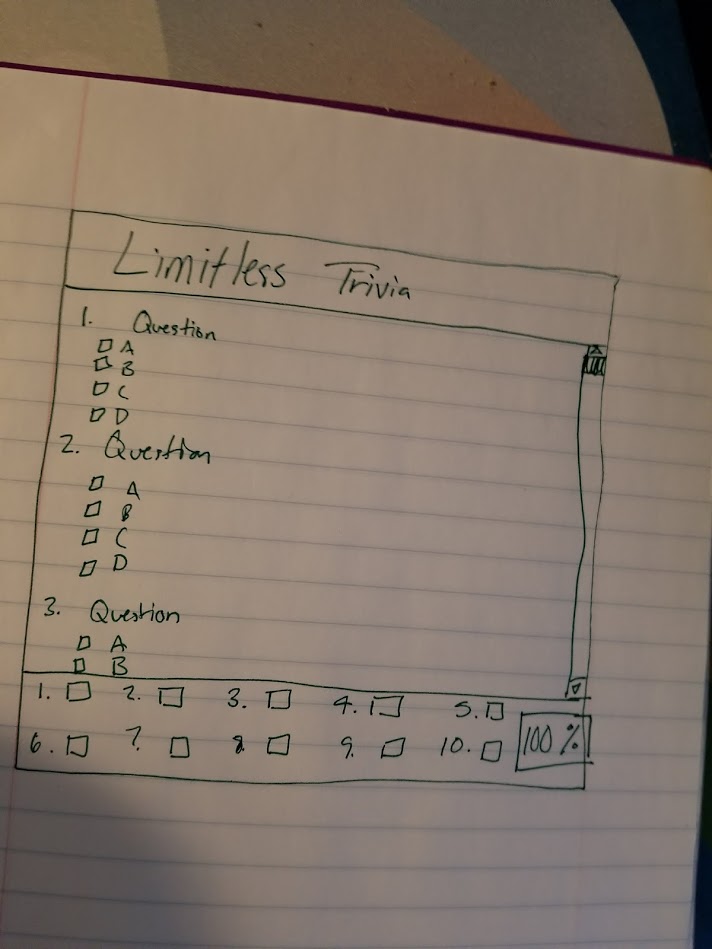 Limitless Trivia
1. Question
A
B
C
D
2. Question
A
B
C
D
3. Question
A
B
1. 2. 3. 4. 5.
6. 7. 8. 9. 10. 100%